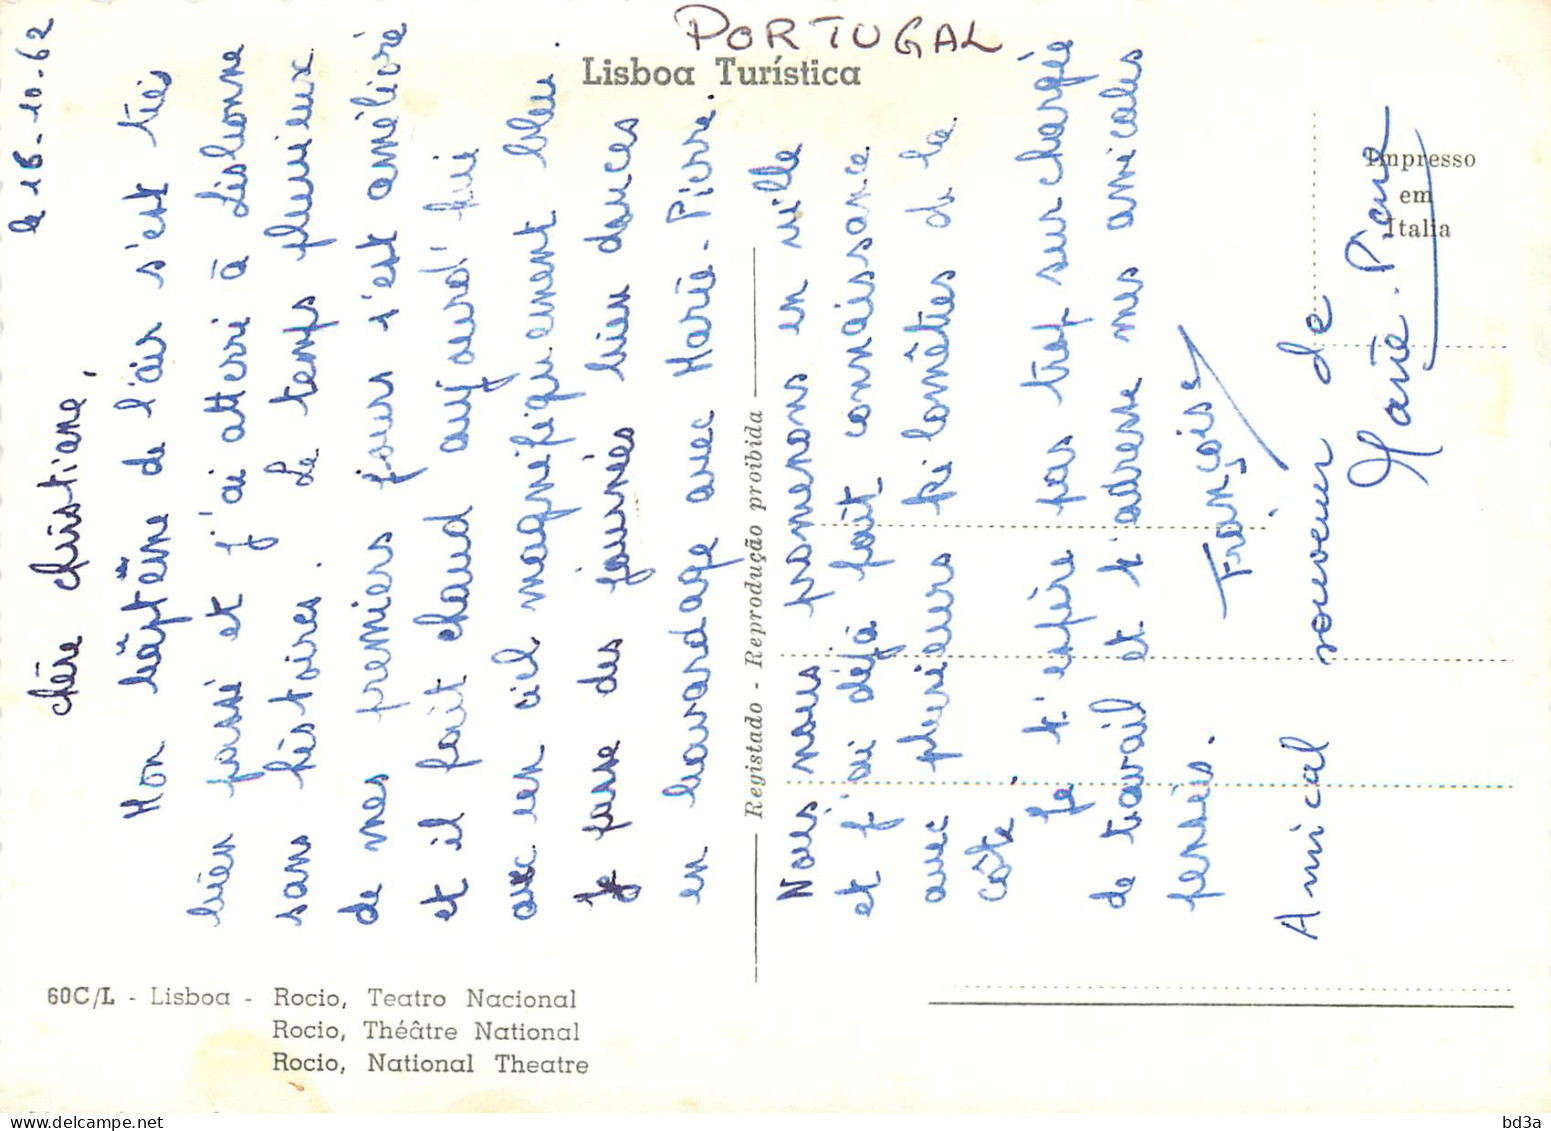 PORTUGAL
Lisboa Turística
le 16-10-62
chère christiane,
Mon baptême de l'air s'est très
bien passé et j'ai atterri à Lisbonne
sans histoires. Le temps pluvieux
de mes premiers jours s'est amélioré
et il fait chaud aujourd'hui
avec un ciel magnifiquement bleu.
Je passe des journées bien douces
en bavardage avec Marie-Pierre.
Nous nous promenons en ville
et j'ai déjà fait connaissance
avec plusieurs kilomètres de la
côte.
Je t'espère pas trop surchargée
de travail et t'adresse mes amicales
pensées.
Françoise
Amical souvenir de
Marie-Pierre
Impresso
em
Italia
Registado - Reprodução proibida
60C/L - Lisboa - Rocio, Teatro Nacional
Rocio, Théâtre National
Rocio, National Theatre
bd3a